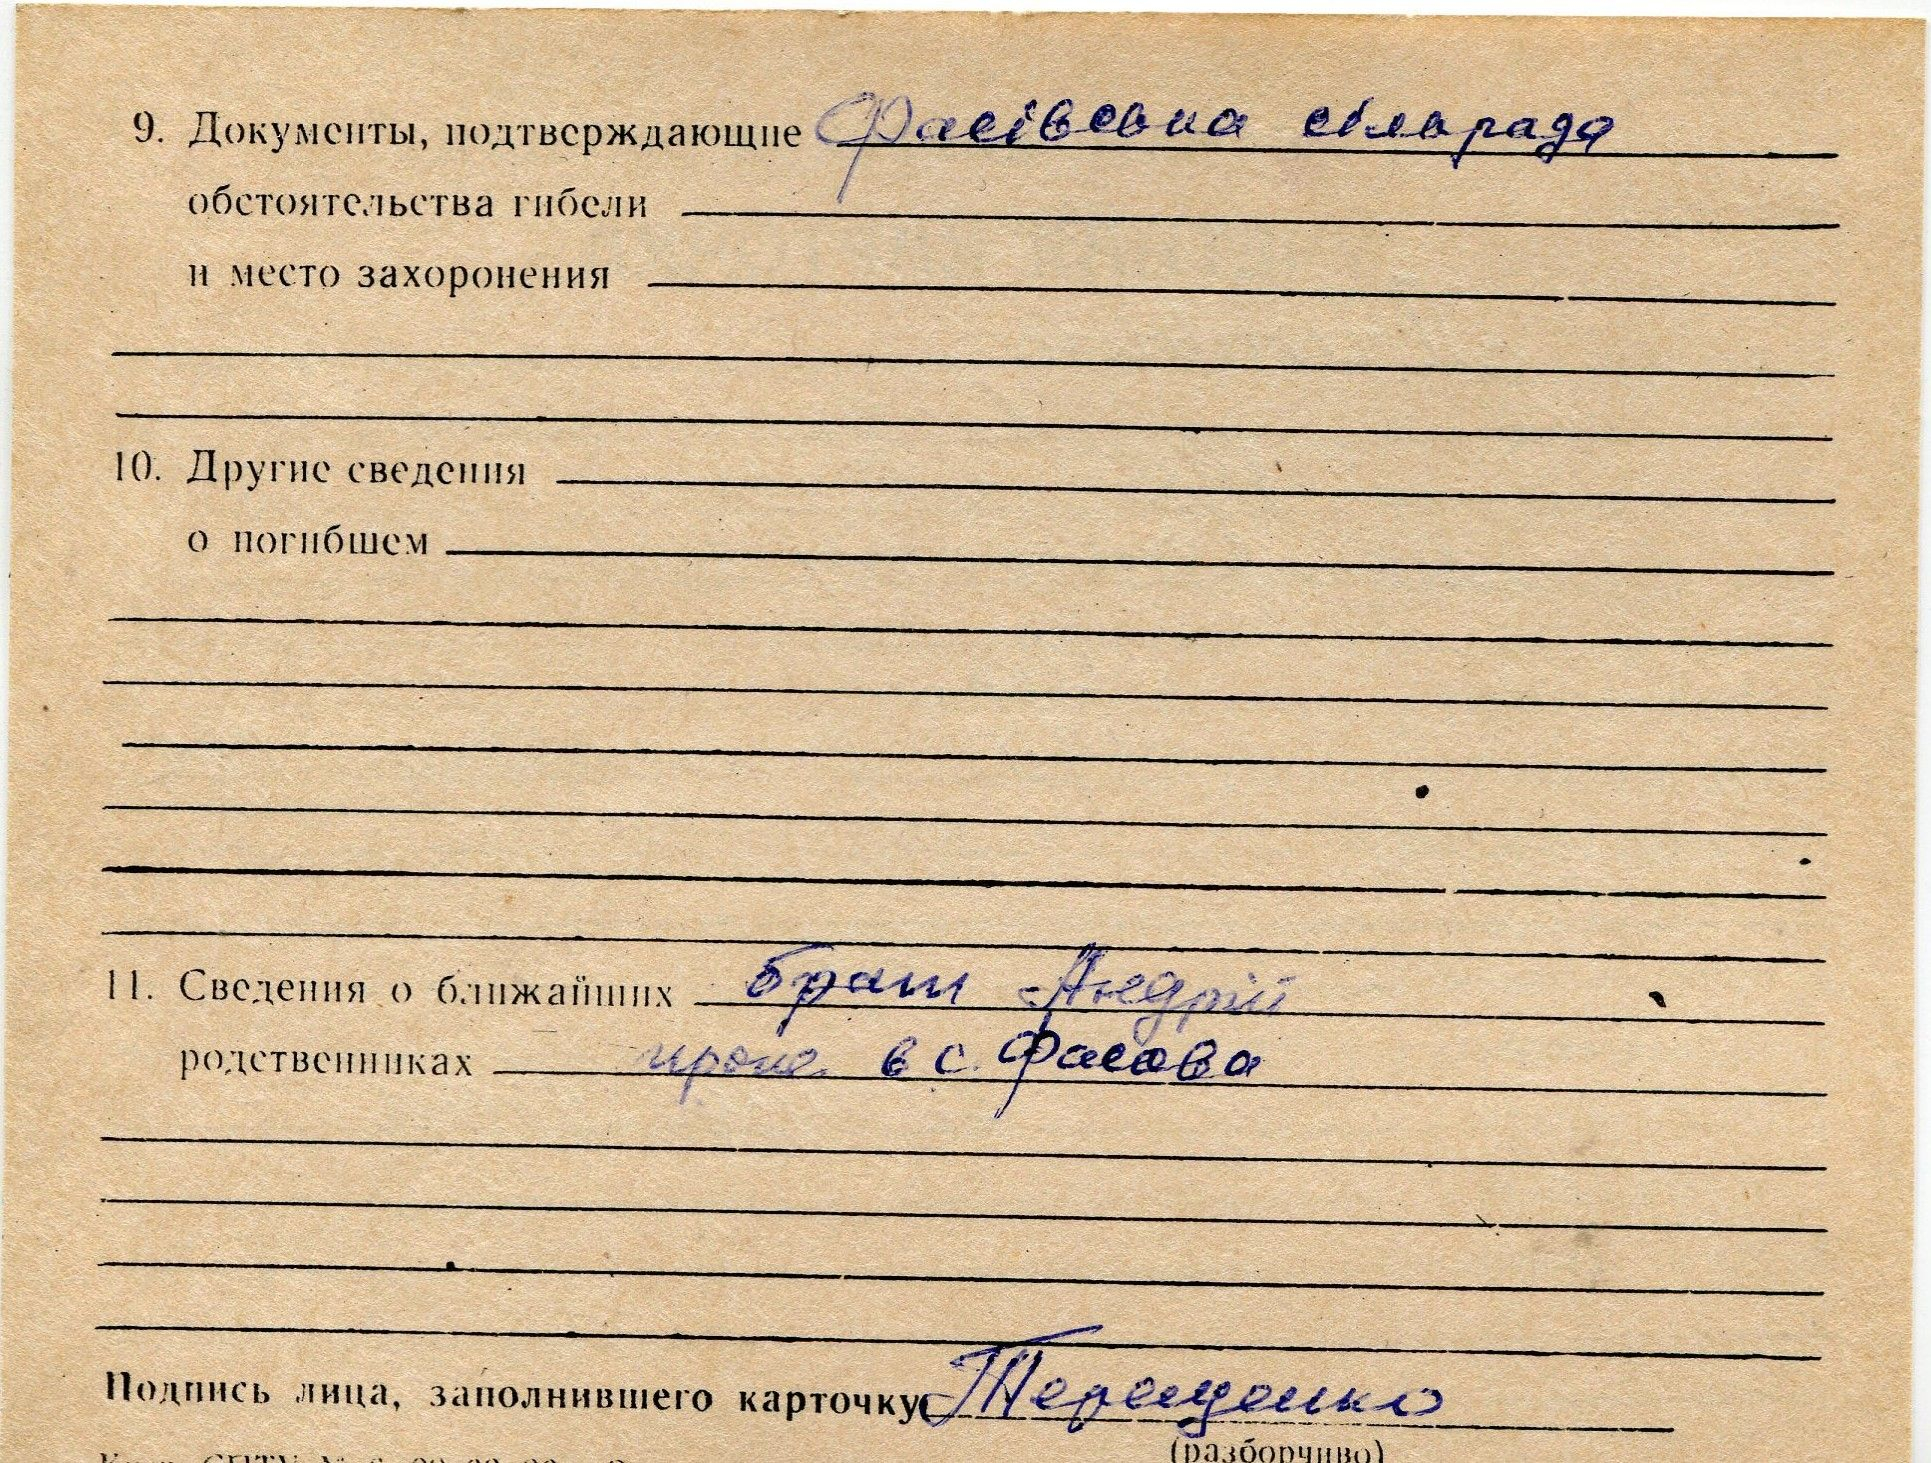 9. Документы, подтверждающие Фасівська сільрада
обстоятельства гибели
и место захоронения
10. Другие сведения
о погибшем
11. Сведения о ближайших брат Андрій
родственниках прож. в с. Фасова
Подпись лица, заполнившего карточку Терещенко
(разборчиво)